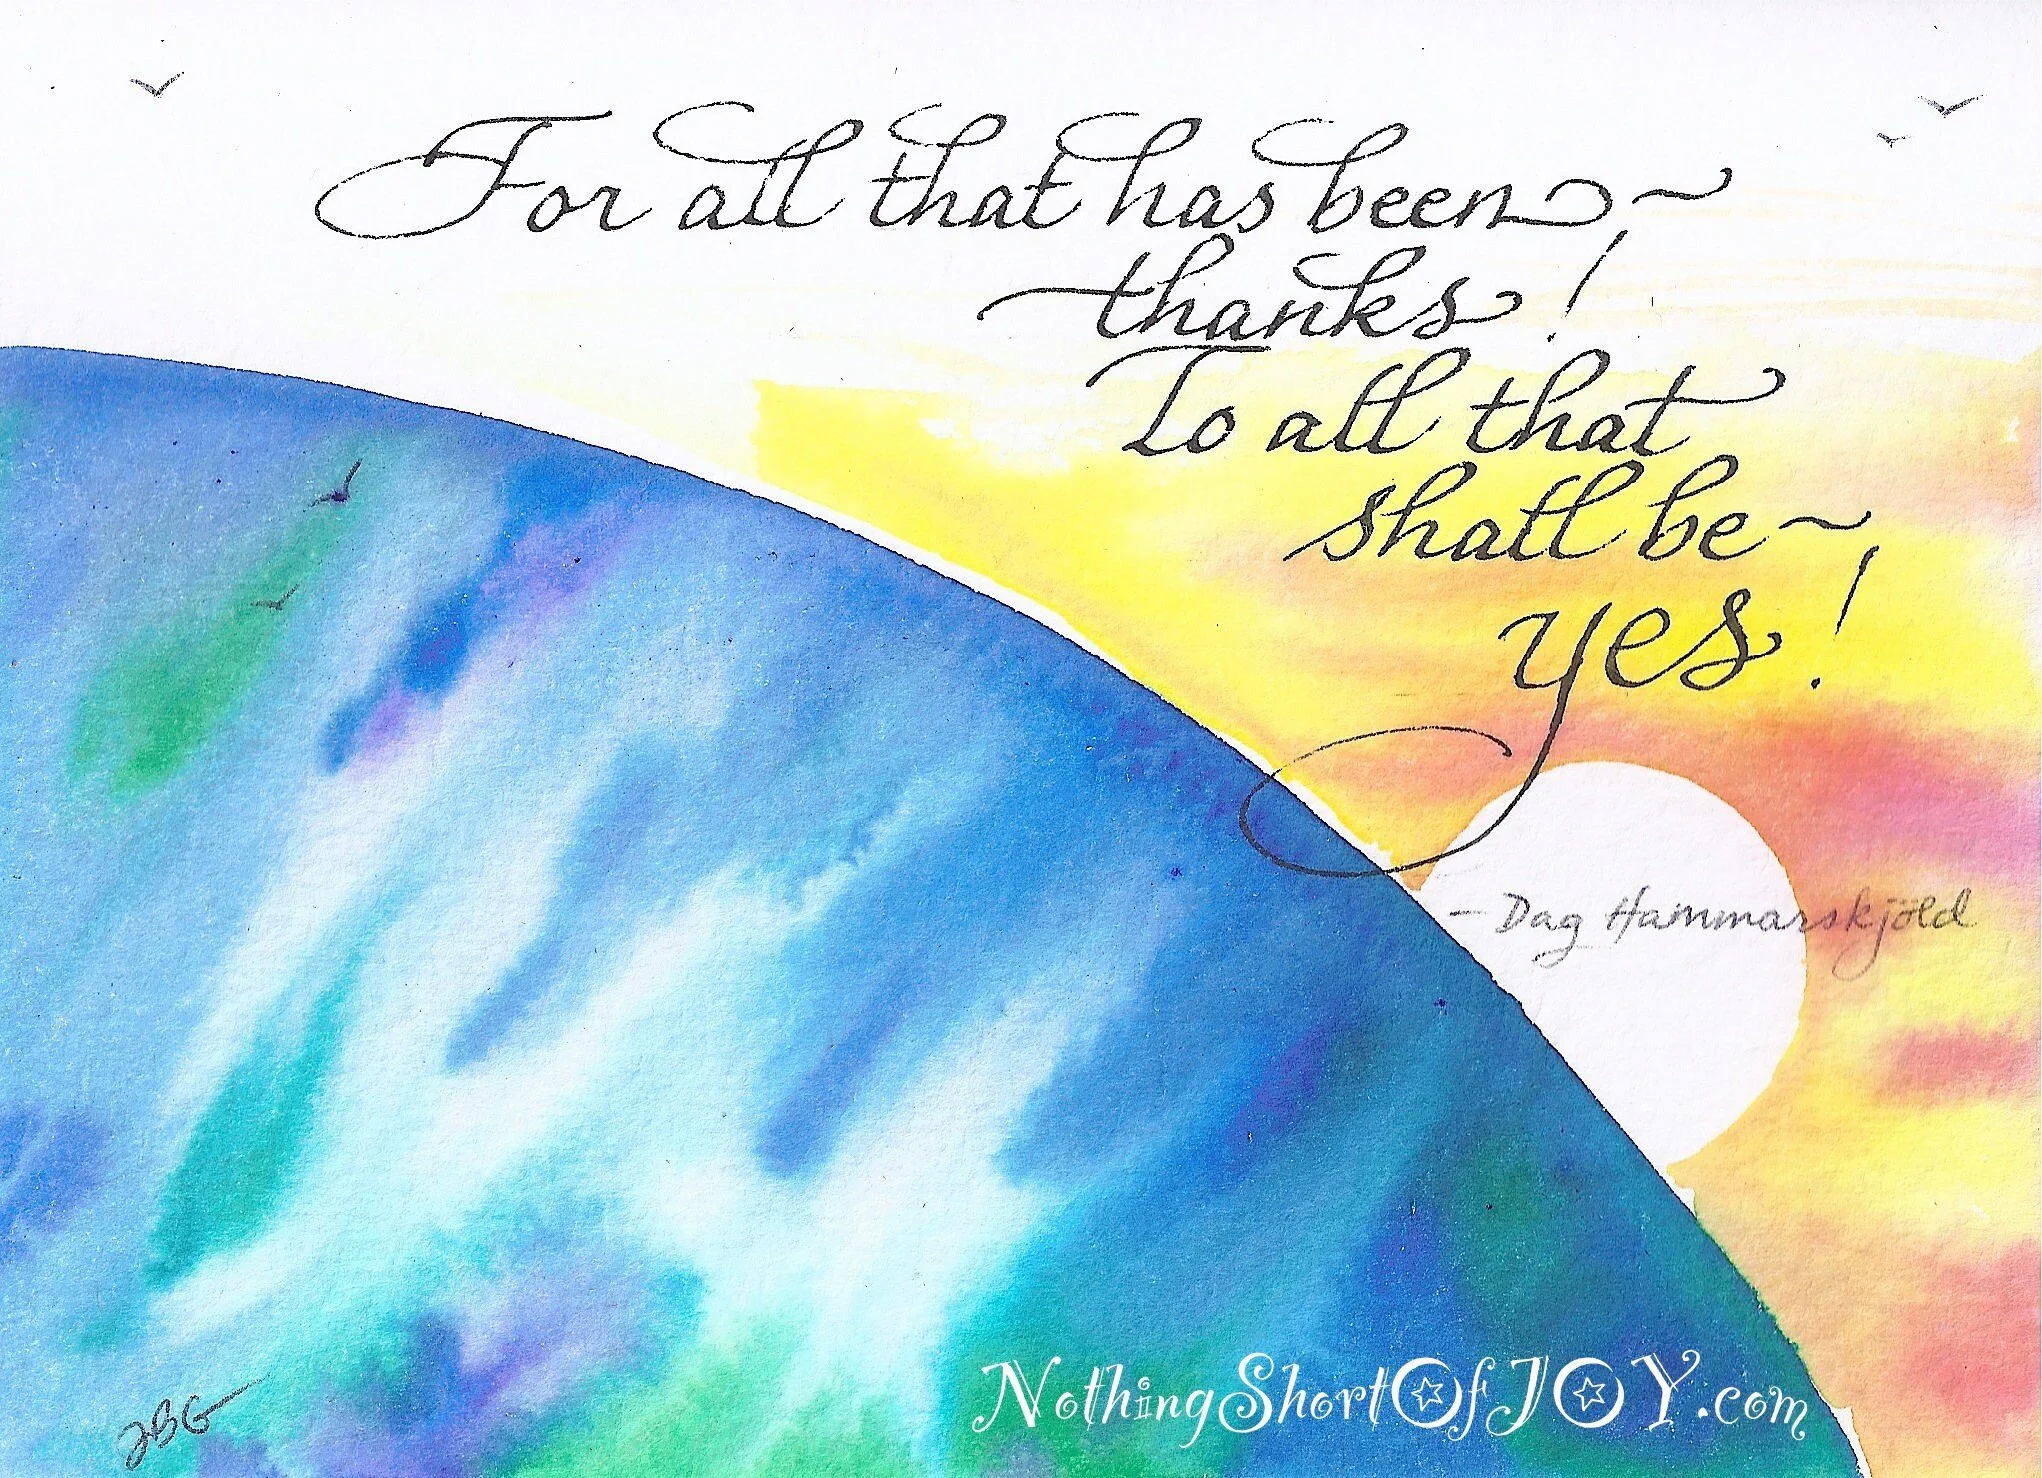 For all that has been ~
thanks!
To all that
shall be ~
yes!
– Dag Hammarskjöld
NothingShortOfJOY.com